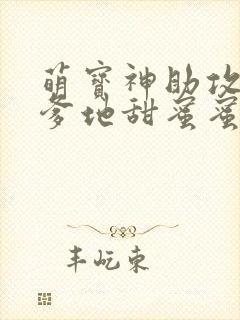 萌宝神助攻
爹地甜蜜蜜
丰屹东